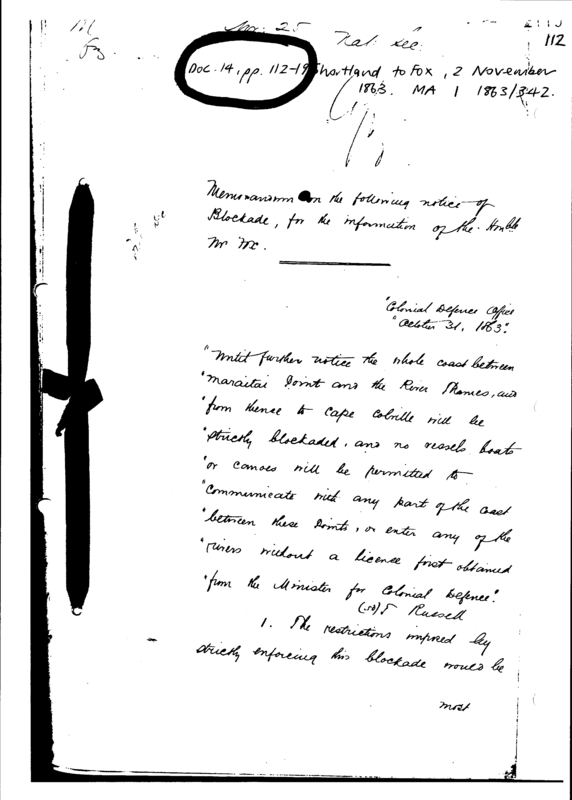 112
Nat. Sec.
Doc. 14, pp. 112-19 Shortland to Fox, 2 November
1863. MA 1 1863/342.
Memorandum on the following notice of
Blockade, for the information of the Honble
Mr Fox.
"Colonial Defence Office
"October 31, 1863".
"Until further notice the whole coast between
"Maraitai Point and the River Thames, and
"from thence to Cape Colville will be
"strictly blockaded, and no vessels boats
"or canoes will be permitted to
"communicate with any part of the coast
"between these points, or enter any of the
"rivers without a license first obtained
"from the Minister for Colonial Defence".
(sd) T Russell
1. The restrictions imposed by
strictly enforcing this blockade would be
most